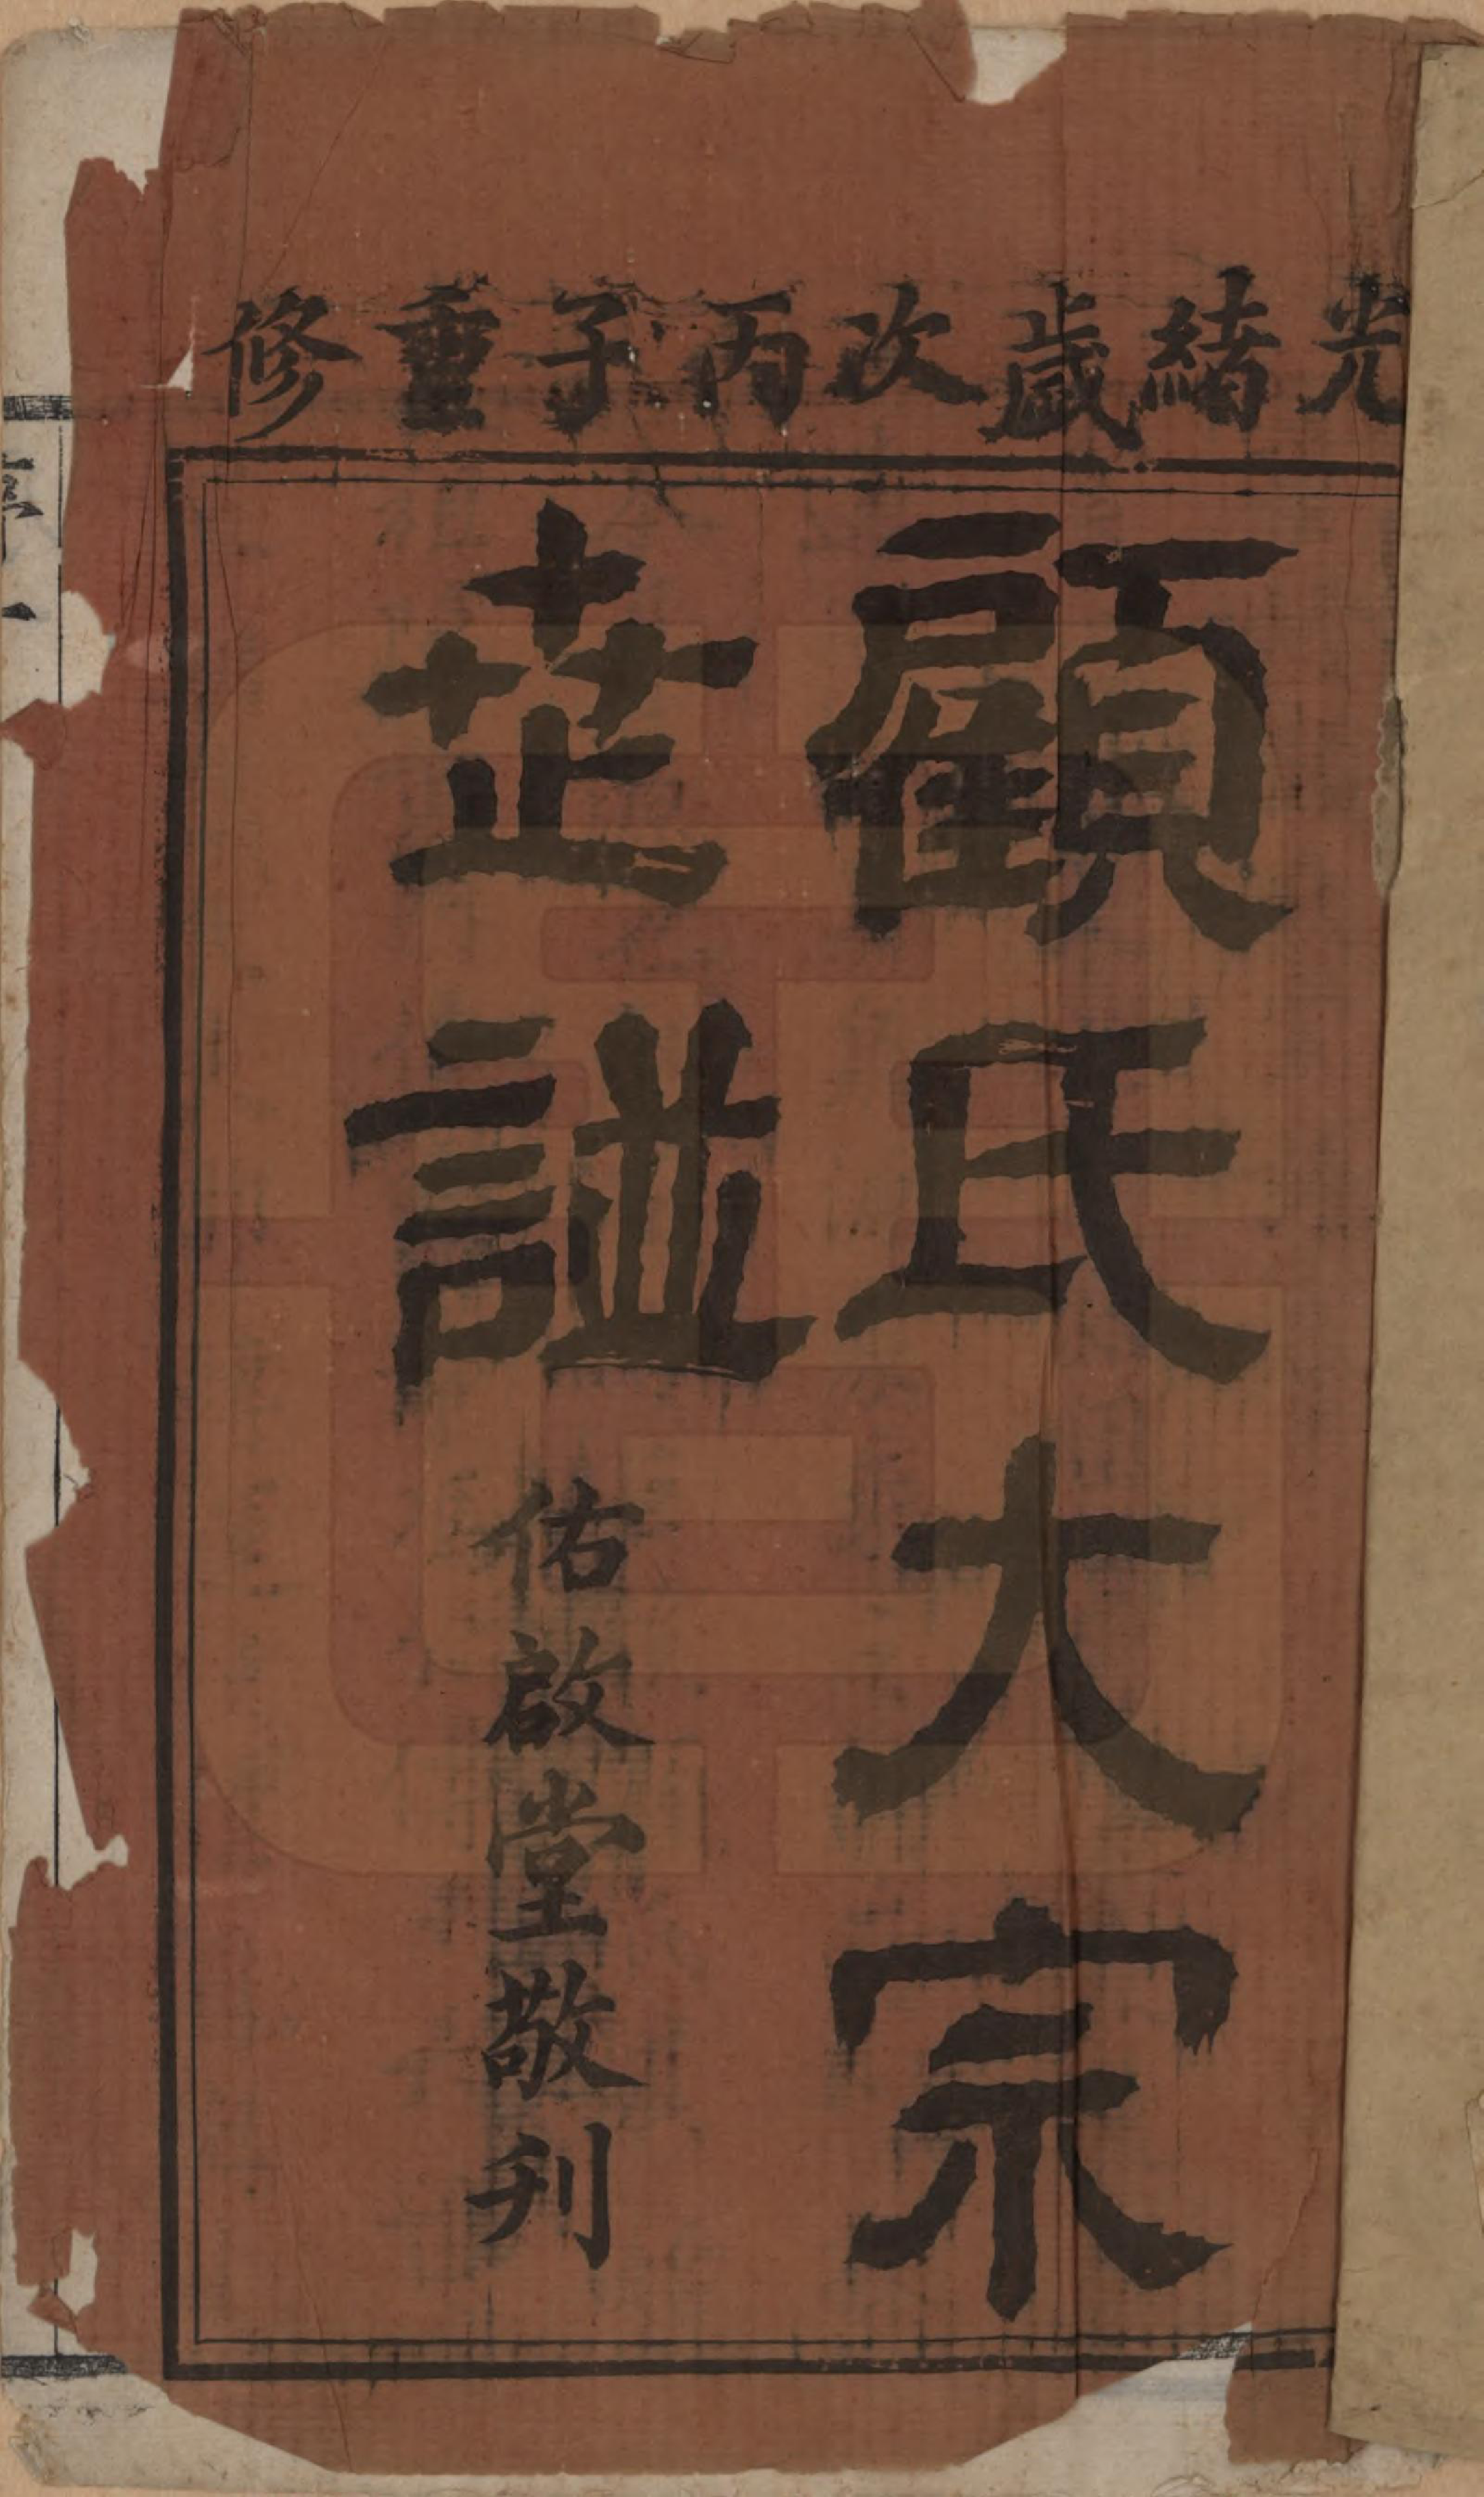 光緒歲次丙子重修
顧氏大宗
世譜
佑啟堂敬刋
序
一